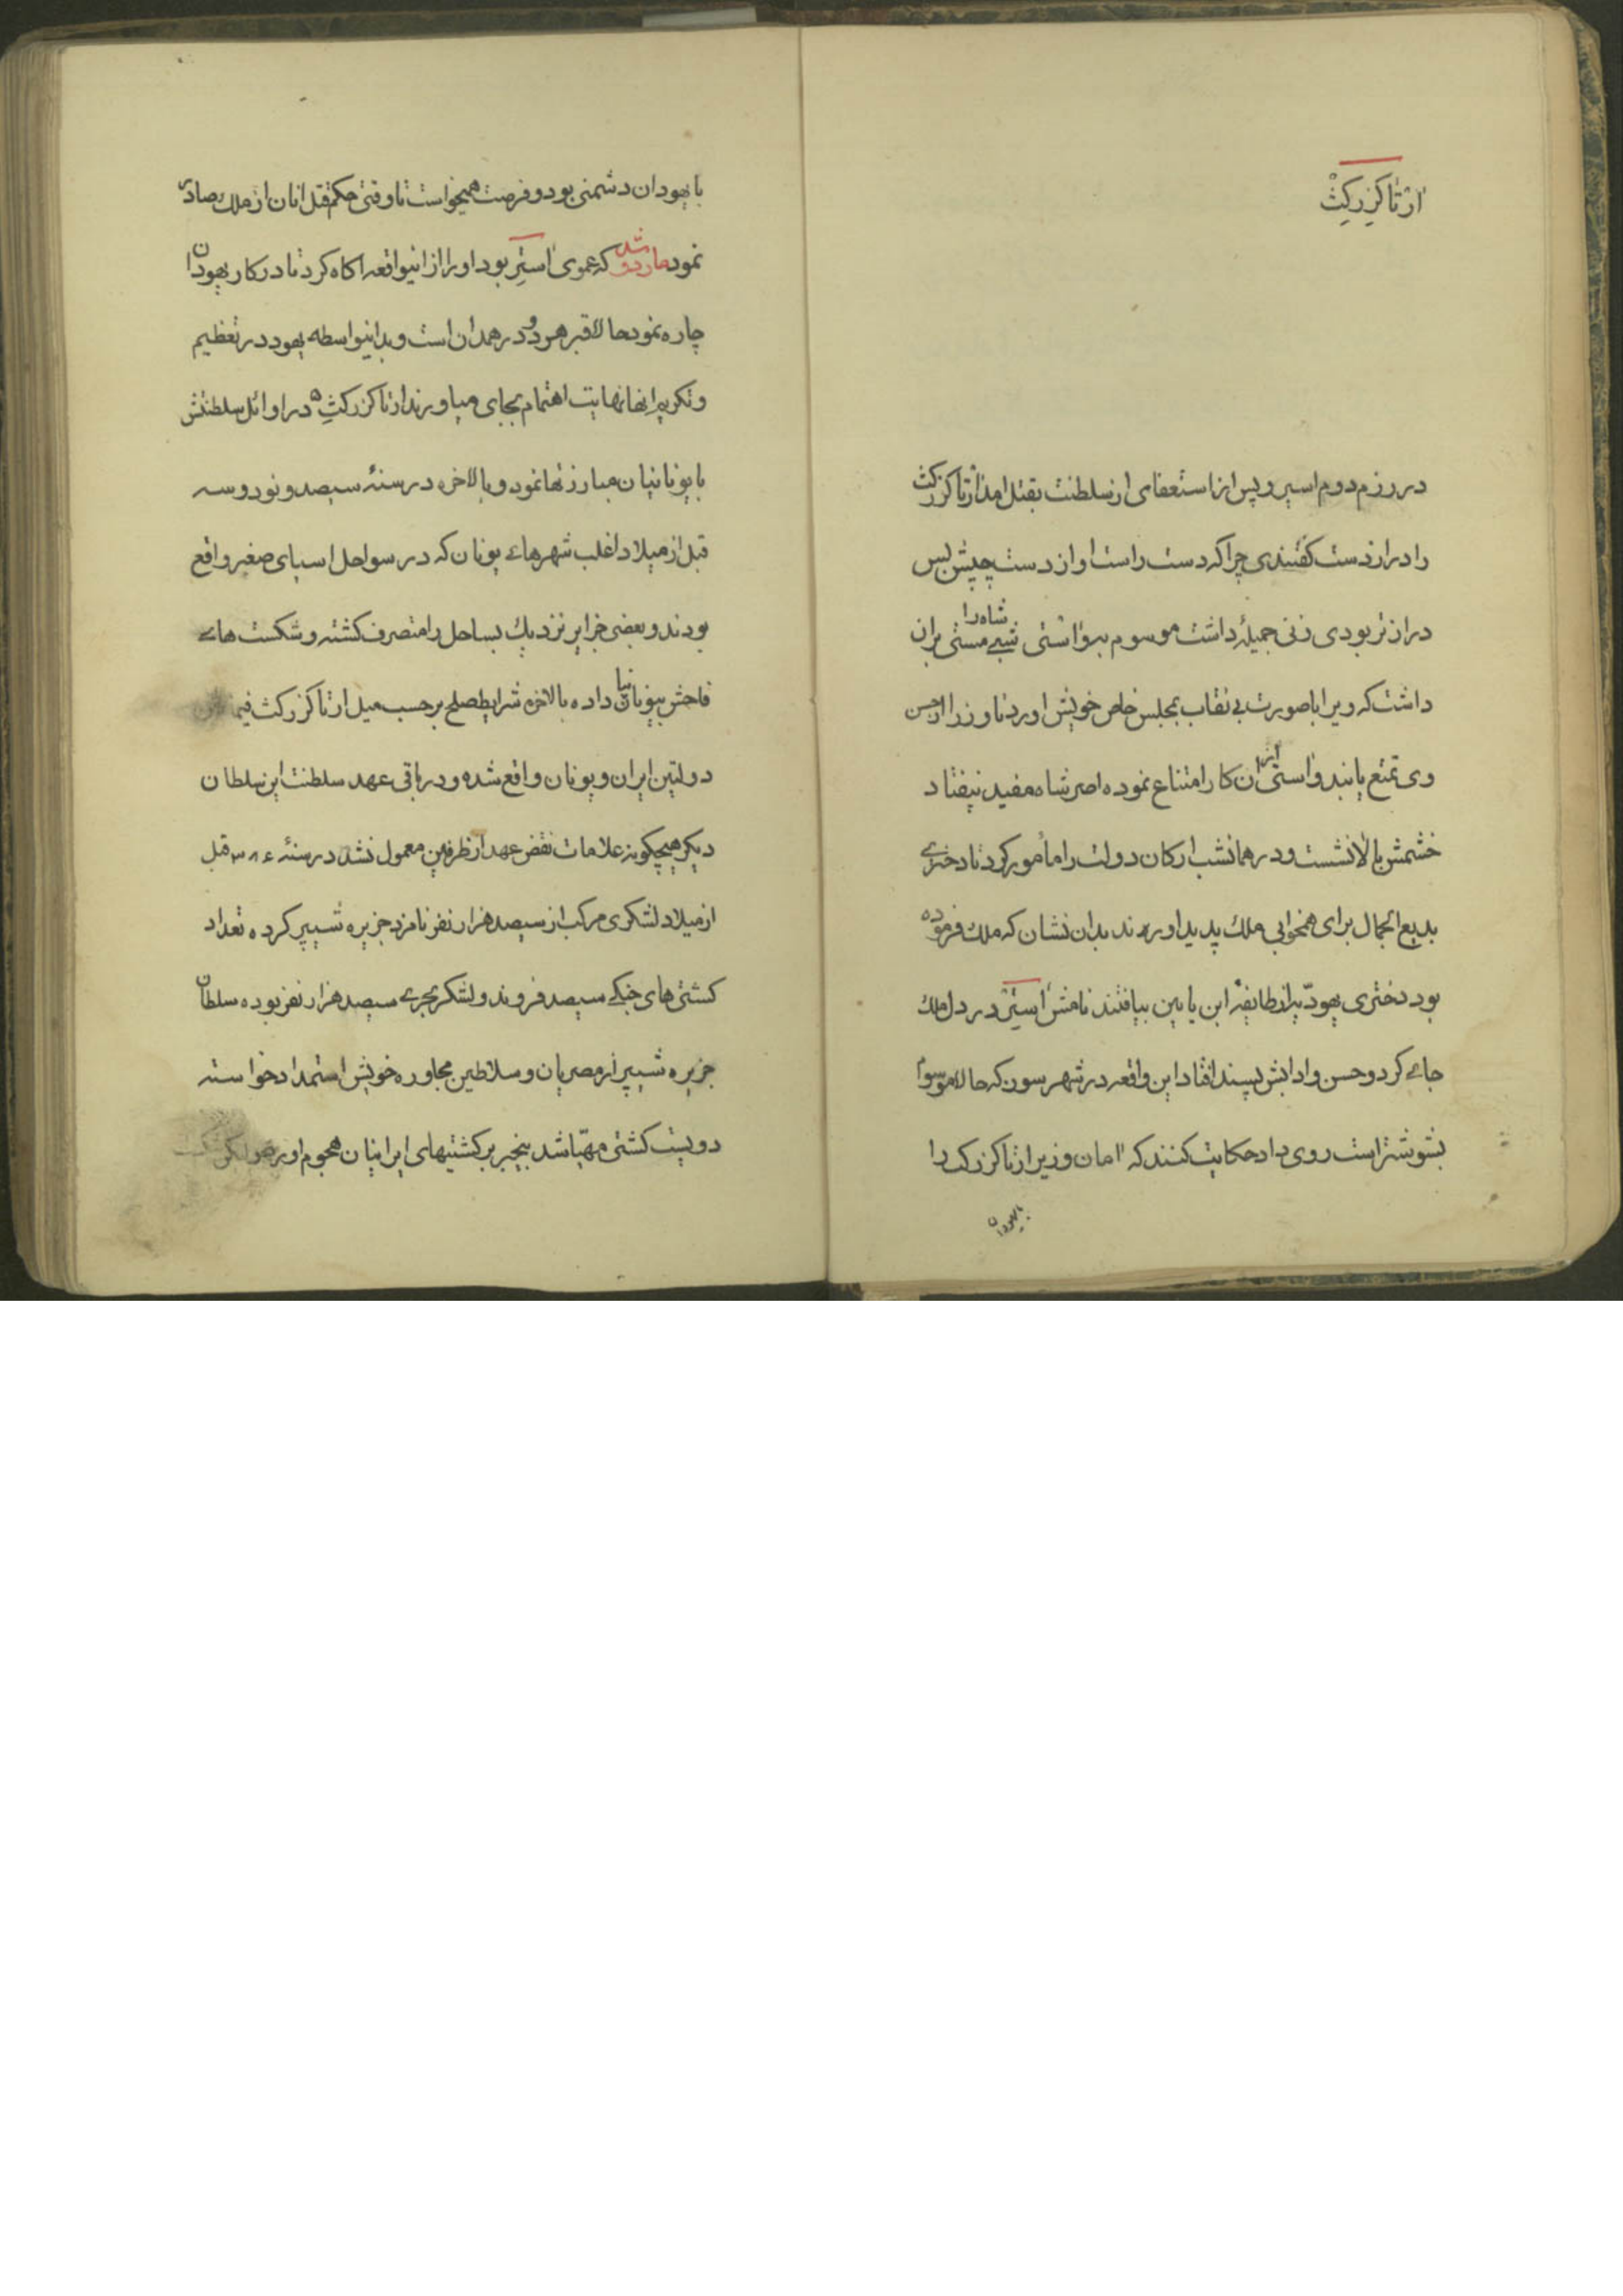 ارتاکزرکث
در رزم دوم اسیر و پس از استعفای از سلطنت بقتل امد ارتاکزرکث
را دراز دست کفتندی چرا که دست راست او از دست چپش بس
درازتر بودی زنی جمیلهٔ داشت موسوم بواستی شبی مستی شاه را بران
داشت که ویرا با صورت بی نقاب بمجلس خاص خویش اورد تا وزرا از حسن
وی تمتع یابند واستی از ان کار امتناع نموده امر شاه مفید نیفتاد
خشمش بالا نشست و در همانشب ارکان دولت را مأمور کرد تا دختری
بدیع الجمال برای همخوابی ملك پدید اورند بدان نشان که ملك فرموده
بود دختری یهودیه از طایفهٔ ابن یامین بیافتند نامش استیر در دل ملك
جای کرد و حسن و ادابش پسند افتاد این واقعه در شهر سوزن که حالا موسوم
بشوشتر است روی داد حکایت کنند که امان وزیر ارتاکزرکث را
با یهودان
با یهودان دشمنی بود و فرصت همیخواست تا وقتی حکم قتل انان از ملك صادر
نمود ماردوشه که عموی استیر بود او را از اینواقعه اکاه کرد تا در کار یهودان
چاره نمود حالا قبر هر دو در همدان است و بداینواسطه یهود در تعظیم
و تکریم انها نهایت اهتمام بجای میاورند ارتاکزرکث در اوائل سلطنتش
با یونانیان مبارزتها نمود و بالاخره در سنهٔ سیصد و نود و سه
قبل از میلاد اغلب شهرهای یونان که در سواحل اسیای صغیر واقع
بودند و بعضی جزایر نزدیك بساحل را متصرف کشته و شکست های
فاحش بیونانیان داده بالاخره شرایط صلح بر حسب میل ارتاکزرکث فیما بین
دولتین ایران و یونان واقع شده و در باقی عهد سلطنت این سلطان
دیکر هیچکونه علامات نقض عهد از طرفین معمول نشد در سنهٔ ۳۸۶ قبل
از میلاد لشکری مرکب از سیصد هزار نفر نامزد جزیره شیپر کرده تعداد
کشتی های جنکی سیصد فروند و لشکر بحری سیصد هزار نفر بوده سلطان
جزیره شیپر از مصریان و سلاطین مجاوره خویش استمداد خواسته
دویست کشتی مهیّا شد بیخبر بر کشتیهای ایرانیان هجوم اورد